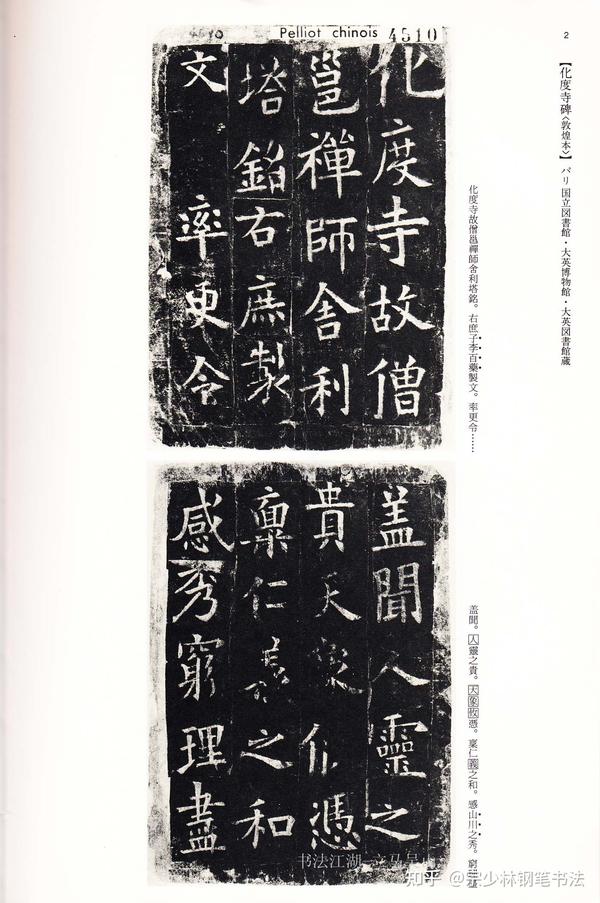 2
【化度寺碑〈敦煌本〉】パリ国立図書館・大英博物館・大英図書館蔵
化度寺故僧邕禪師舍利塔銘。右庶子李百藥製文。率更令……
Pelliot chinois 4510
4510
化度寺故僧
邕禪師舍利
塔銘右庶製
文率更令
盖聞。人靈之貴。天象攸憑。稟仁義之和。感山川之秀。窮理盡
盖聞人靈之
貴天象攸憑
稟仁義之和
感秀窮理盡
书法江湖
知乎 @宗少林钢笔书法